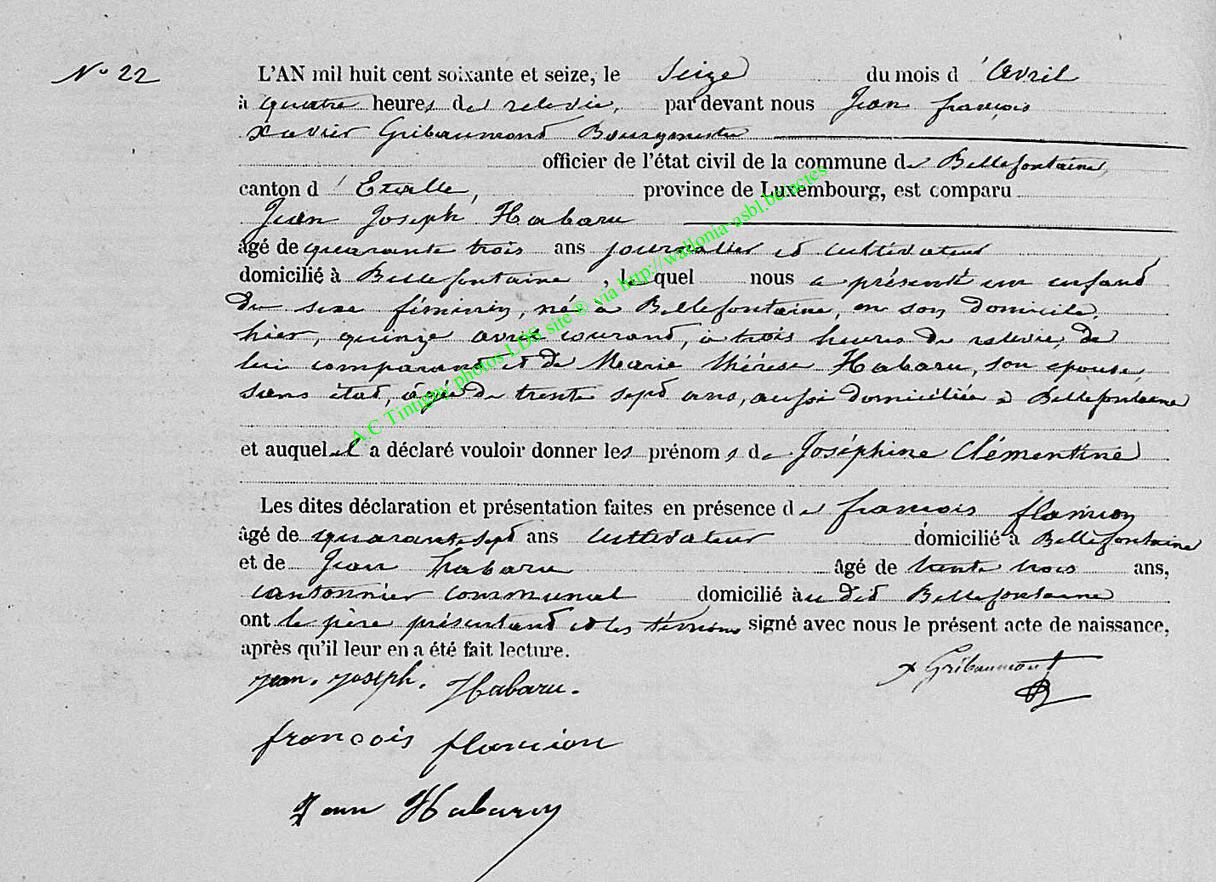 No 22
L'AN mil huit cent soixante et seize, le Seize du mois d'Avril
à quatre heures de relevée, par devant nous Jean françois
Xavier Gribaumont Bourgmestre
officier de l'état civil de la commune de Bellefontaine,
canton d'Etalle, province de Luxembourg, est comparu
Jean Joseph Habaru
âgé de quarante trois ans journalier et cultivateur
domicilié à Bellefontaine, lequel nous a présenté un enfant
du sexe féminin, né à Bellefontaine, en son domicile,
hier, quinze avril courant, à trois heures de relevée, de
lui comparant et de Marie Thérèse Habaru, son épouse,
sans état, âgée de trente sept ans, aussi domiciliée à Bellefontaine
et auquel il a déclaré vouloir donner les prénoms de Joséphine Clémentine
Les dites déclaration et présentation faites en présence de françois flamion
âgé de quarante sept ans cultivateur domicilié à Bellefontaine
et de Jean habaru âgé de trente trois ans,
cantonnier communal domicilié au dit Bellefontaine
ont le père présentant et les témoins signé avec nous le présent acte de naissance,
après qu'il leur en a été fait lecture.
jean. joseph. Habaru.
X Gribaumont
françois flamion
Jean Habaru
A.C Tintigny photos LDS site ® via http://wallonia-asbl.be/actes